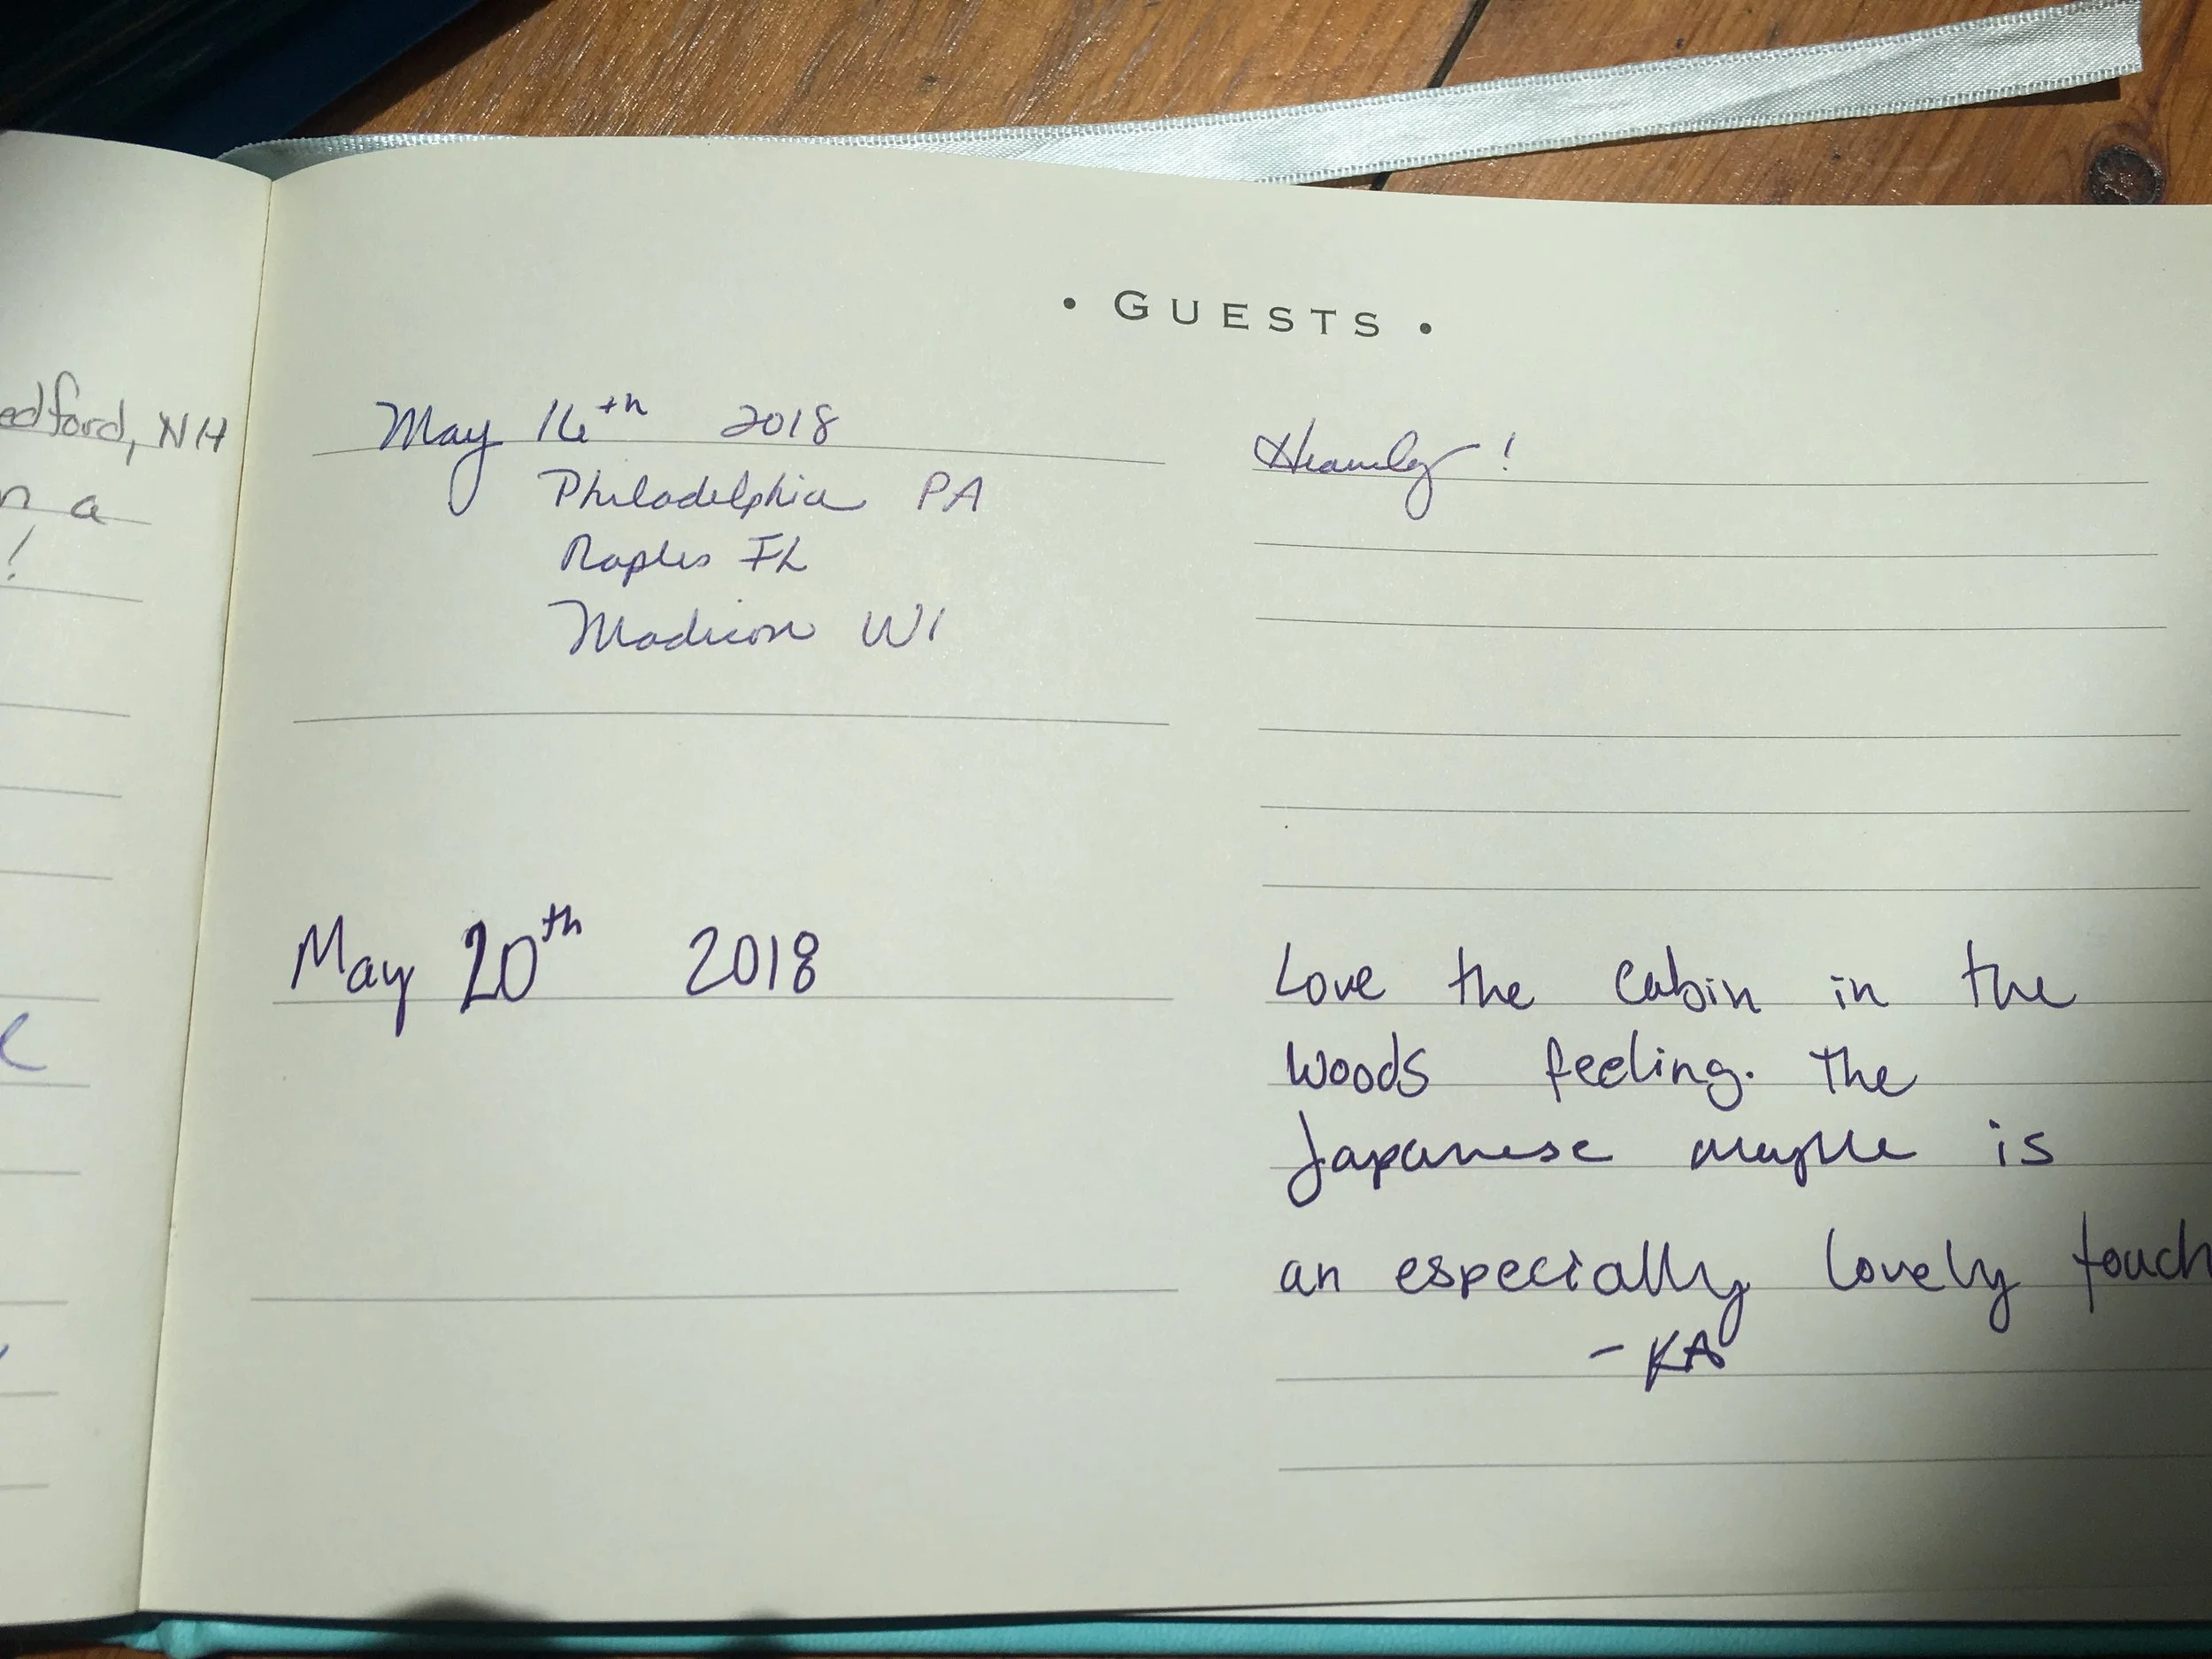 edford, NH
n a
!
• GUESTS •
May 16th 2018
Philadelphia PA
Naples FL
Madison WI
Heavenly!
May 20th 2018
Love the cabin in the
woods feeling. The
Japanese maple is
an especially lovely touch
- KA